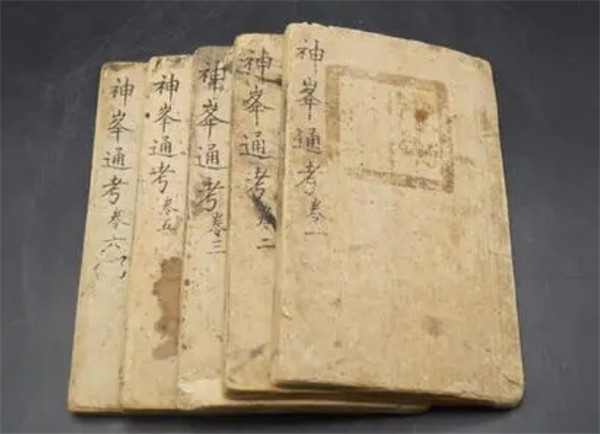 神峯通考卷一
神峯通考卷二
神峯通考卷三
神峯通考卷五
神峯通考卷六